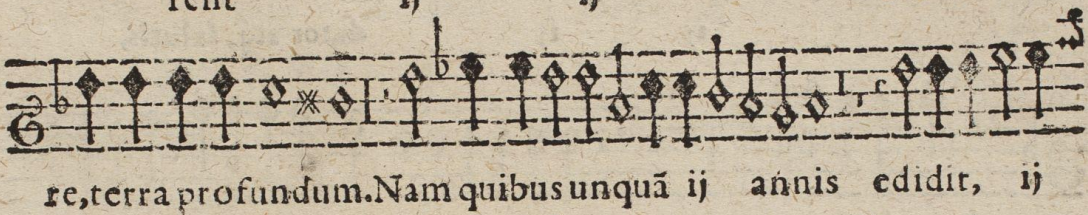 rent ij ij
re,terra profundum.Nam quibus unquã ij annis edidit, ij